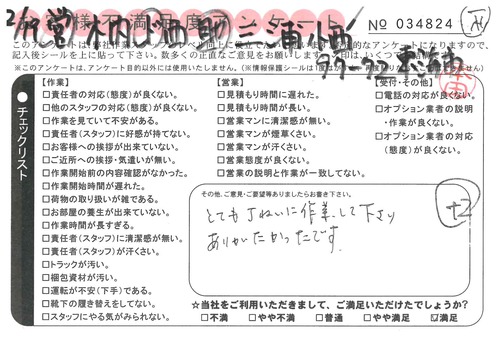 お客様不満足度アンケート
No 034824
記入後シールを上に貼って下さい。数多くの正直なご意見をお願いします。
※このアンケートは、アンケート目的以外には使用いたしません。
チェックリスト
【作業】
□責任者の対応(態度)が良くない。
□他のスタッフの対応(態度)が良くない。
□作業を見ていて不安がある。
□責任者(スタッフ)に好感が持てない。
□お客様への挨拶が出来ていない。
□ご近所への挨拶・気遣いが無い。
□作業開始前の内容確認がなかった。
□作業開始時間が遅れた。
□荷物の取り扱いが雑である。
□お部屋の養生が出来ていない。
□作業時間が長すぎる。
□責任者(スタッフ)に清潔感が無い。
□責任者(スタッフ)が汗くさい。
□トラックが汚い。
□梱包資材が汚い。
□運転が不安(下手)である。
□靴下の履き替えをしてない。
□スタッフにやる気がみられない。
【営業】
□見積もり時間に遅れた。
□見積もり時間が長い。
□営業マンに清潔感が無い。
□営業マンが煙草くさい。
□営業マンが汗くさい。
□営業態度が良くない。
□営業の説明と作業が一致してない。
【受付・その他】
□電話の対応が良くない。
□オプション業者の説明
・作業が良くない。
□オプション業者の対応
(態度)が良くない。
その他、ご意見・ご要望等ありましたらお書き下さい。
とてもていねいに作業して下さり
ありがたかったです。
+2
☆当社をご利用いただきまして、ご満足いただけたでしょうか?
□不満 □やや不満 □普通 □やや満足 ☑満足